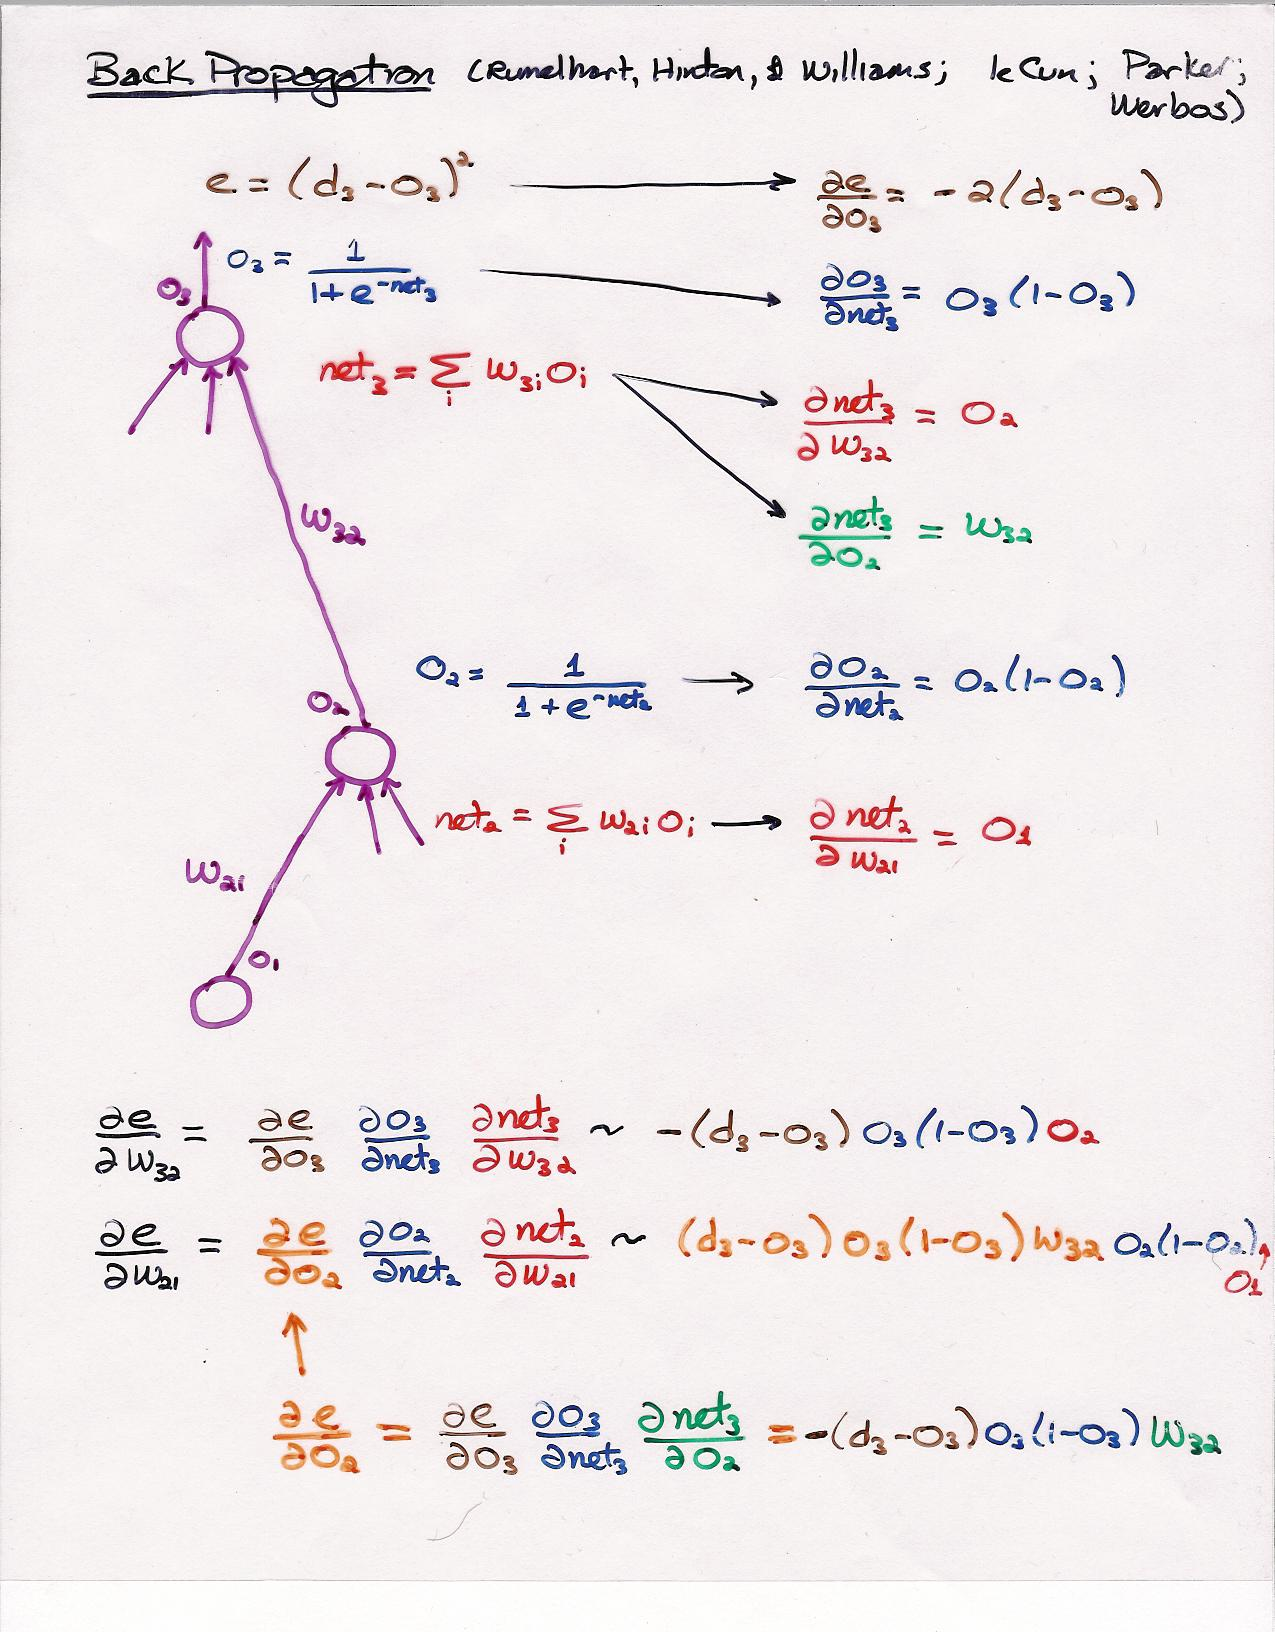 Back Propagation (Rumelhart, Hinton, & Williams; leCun; Parker;
Werbos)
e = (d₃-O₃)² ∂e/∂O₃ = -2(d₃-O₃)
O₃
O₃ = 1/(1+e^-net₃) ∂O₃/∂net₃ = O₃(1-O₃)
net₃ = Σᵢ W₃ᵢOᵢ ∂net₃/∂W₃₂ = O₂
∂net₃/∂O₂ = W₃₂
W₃₂
O₂
O₂ = 1/(1+e^-net₂) ∂O₂/∂net₂ = O₂(1-O₂)
net₂ = Σᵢ W₂ᵢOᵢ ∂net₂/∂W₂₁ = O₁
W₂₁
O₁
∂e/∂W₃₂ = ∂e/∂O₃ ∂O₃/∂net₃ ∂net₃/∂W₃₂ ~ -(d₃-O₃)O₃(1-O₃)O₂
∂e/∂W₂₁ = ∂e/∂O₂ ∂O₂/∂net₂ ∂net₂/∂W₂₁ ~ (d₃-O₃)O₃(1-O₃)W₃₂ O₂(1-O₂)
O₁
∂e/∂O₂ = ∂e/∂O₃ ∂O₃/∂net₃ ∂net₃/∂O₂ = -(d₃-O₃)O₃(1-O₃)W₃₂